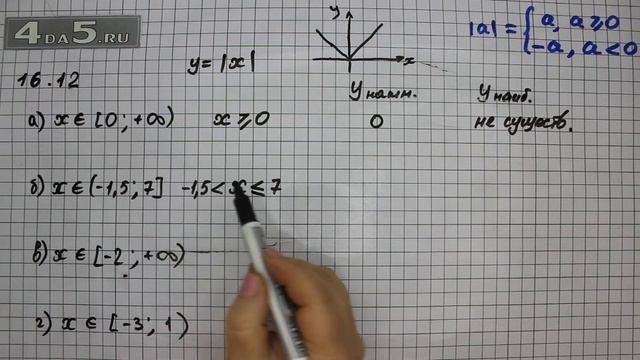 4DA5.RU
y = |x|
y
x
|a| = { a, a ≥ 0
-a, a < 0
16.12
Yнаим. Yнаиб.
а) x ∈ [0; +∞) x ≥ 0 0 не существ.
б) x ∈ (-1,5; 7] -1,5 < x ≤ 7
в) x ∈ [-2; +∞)
г) x ∈ [-3; 1)